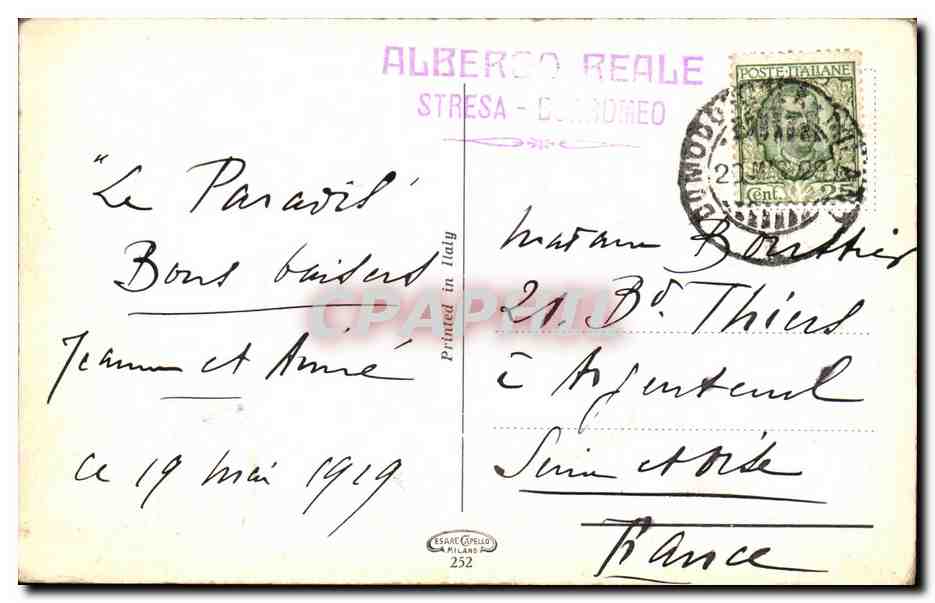 ALBERGO REALE
STRESA - BORROMEO
POSTE ITALIANE
Cent. 25
"Le Paradis"
Bons baisers
Jeanne et Aimé
ce 19 mai 1919
Printed in Italy
CPAPHIL
Madame
21. Bd. Thiers
à Argenteuil
Seine et Oise
France
CESARE CAPELLO
MILANO
252